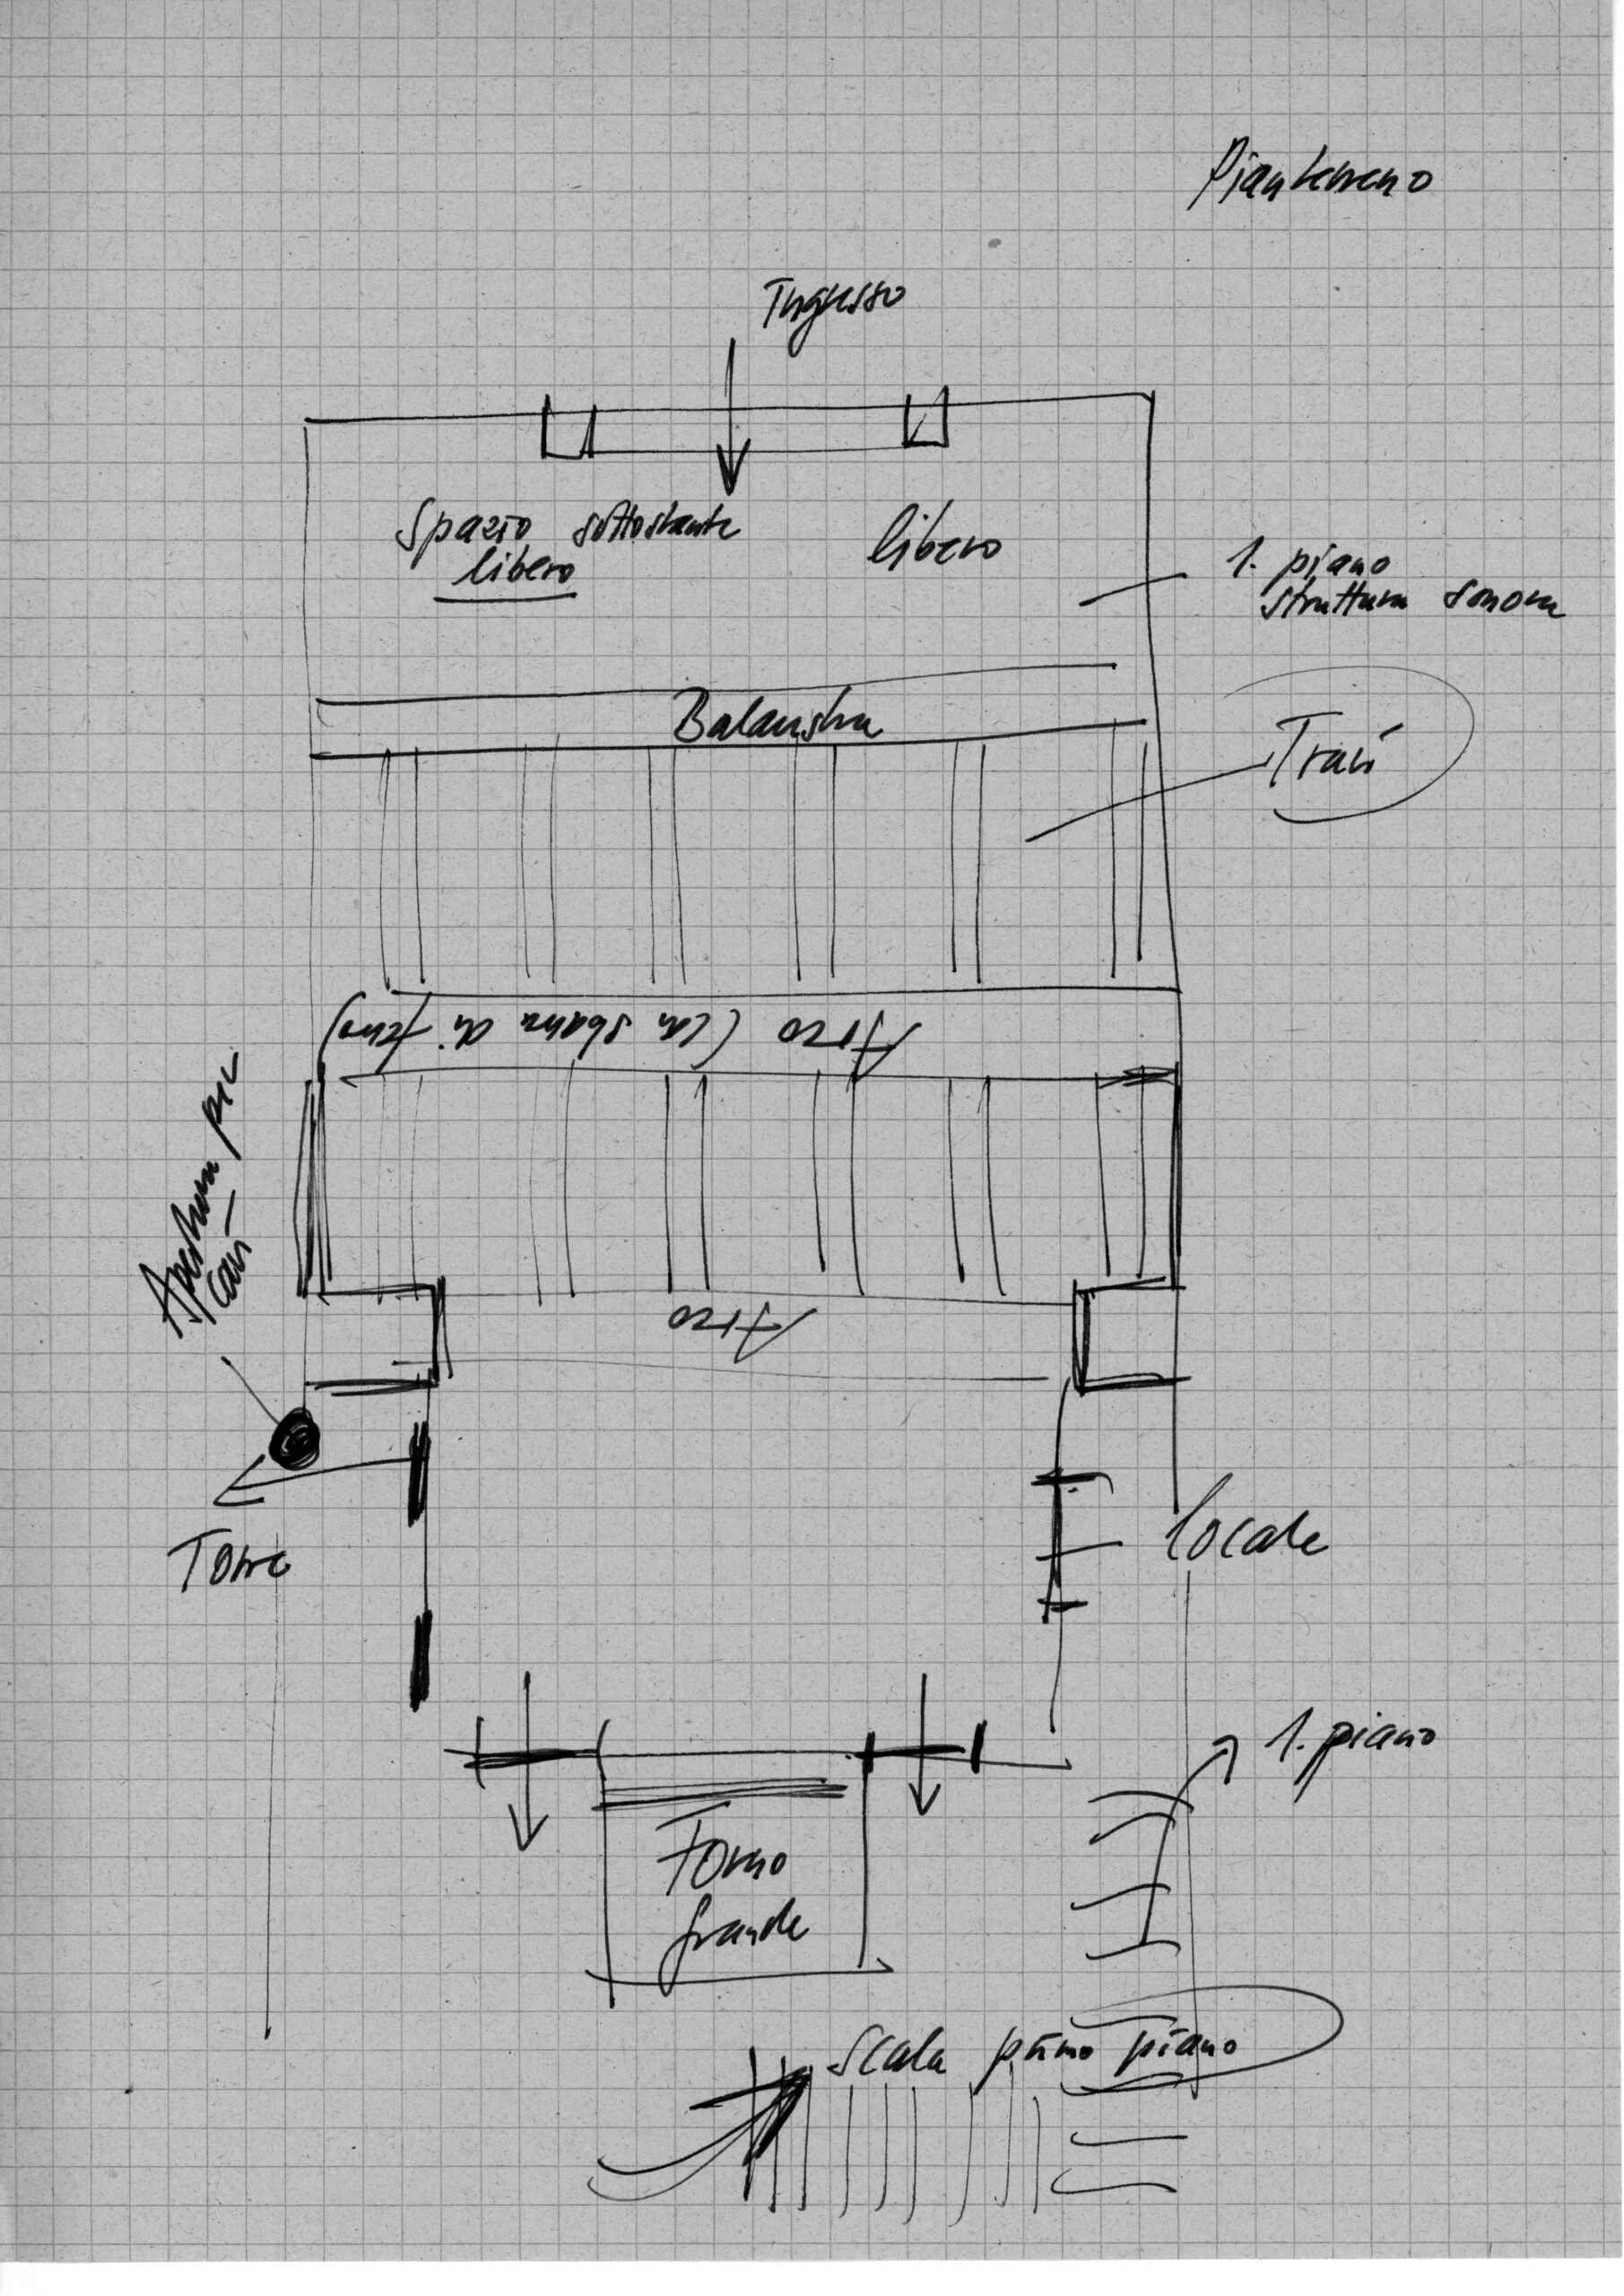 Pianterreno
Ingresso
Spazio sottostante
libero
libero
1. piano
struttura sonora
Balaustra
Travi
Arco (con sbarra di ferro)
Apertura per
cavi
Arco
Torre
locale
1. piano
Forno
grande
Scala primo piano